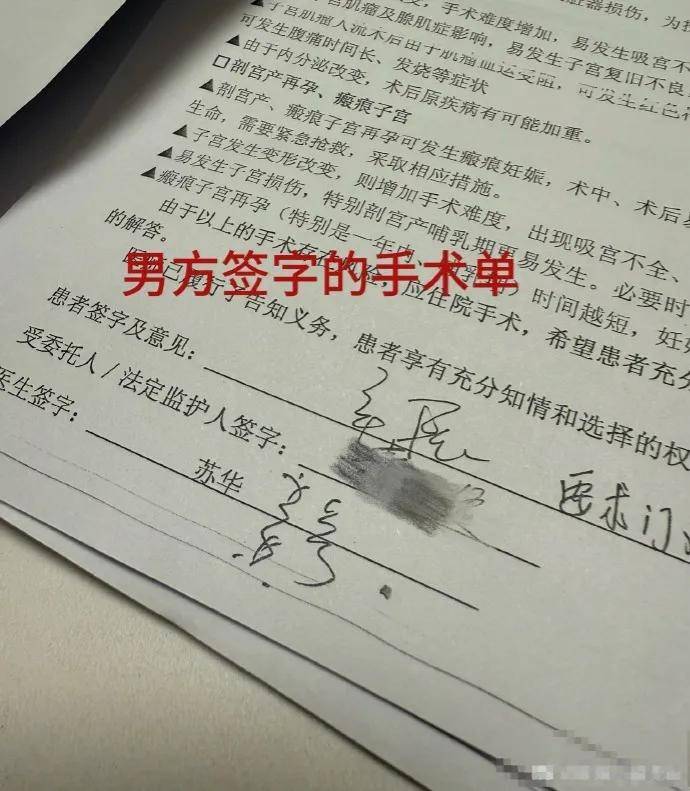 脏器损伤,为
宫肌瘤及腺肌症影响,手术难度增加,易发生吸宫不
▲子宫肌瘤人流术后由于肌瘤血运受阻,可发生红色
可发生腹痛时间长、发烧等症状 易发生子宫复旧不良
▲由于内分泌改变,术后原疾病有可能加重。
□剖宫产再孕、瘢痕子宫
▲剖宫产、瘢痕子宫再孕可发生瘢痕妊娠,术中、术后
生命,需要紧急抢救,采取相应措施。
▲子宫发生变形改变,则增加手术难度,出现吸宫不全、
▲易发生子宫损伤,特别剖宫产哺乳期更易发生。必要时
▲瘢痕子宫再孕(特别是一年内 时间越短,妊
由于以上的手术存在 应住院手术,希望患者充
的解答。
男方签字的手术单
已履行了告知义务,患者享有充分知情和选择的权
患者签字及意见:
要求门
受委托人/法定监护人签字:
医生签字:
苏华